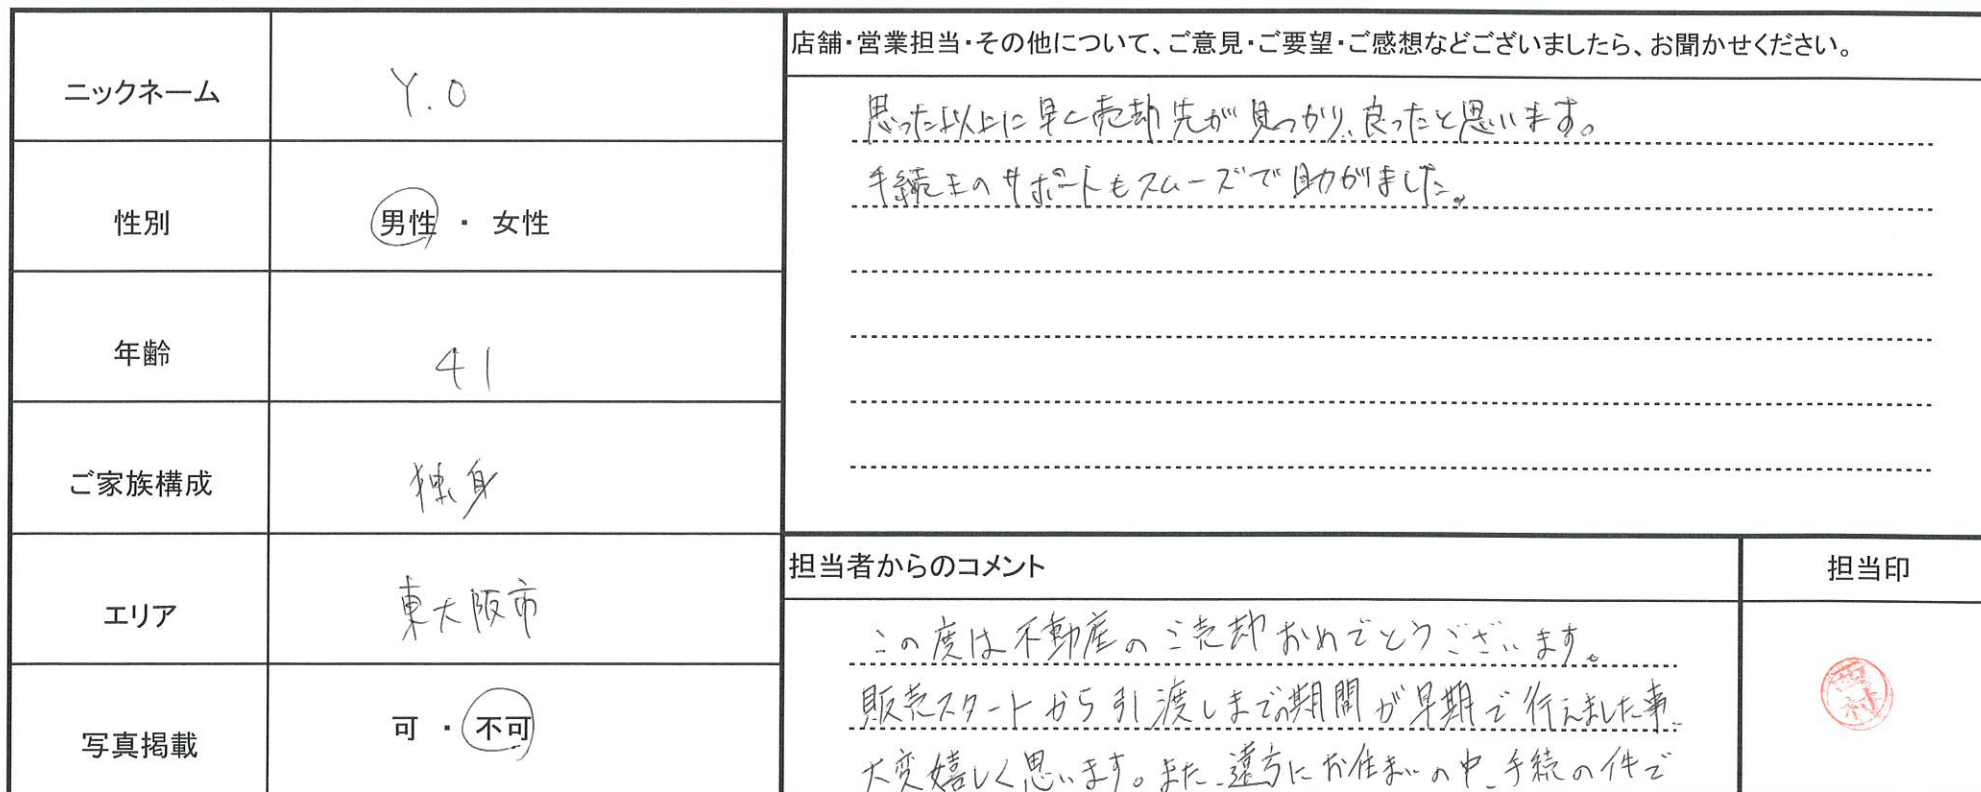 ニックネーム
Y.O
性別
男性 ・ 女性
年齢
41
ご家族構成
独身
エリア
東大阪市
写真掲載
可 ・ 不可
店舗・営業担当・その他について、ご意見・ご要望・ご感想などございましたら、お聞かせください。
思った以上に早く売却先が見つかり、良ったと思います。
手続きのサポートもスムーズで助かりました。
担当者からのコメント
この度は不動産のご売却おめでとうございます。
販売スタートから引渡しまでの期間が早期で行えました事
大変嬉しく思います。また、遠方にお住まいの中、手続の件で
担当印
西村